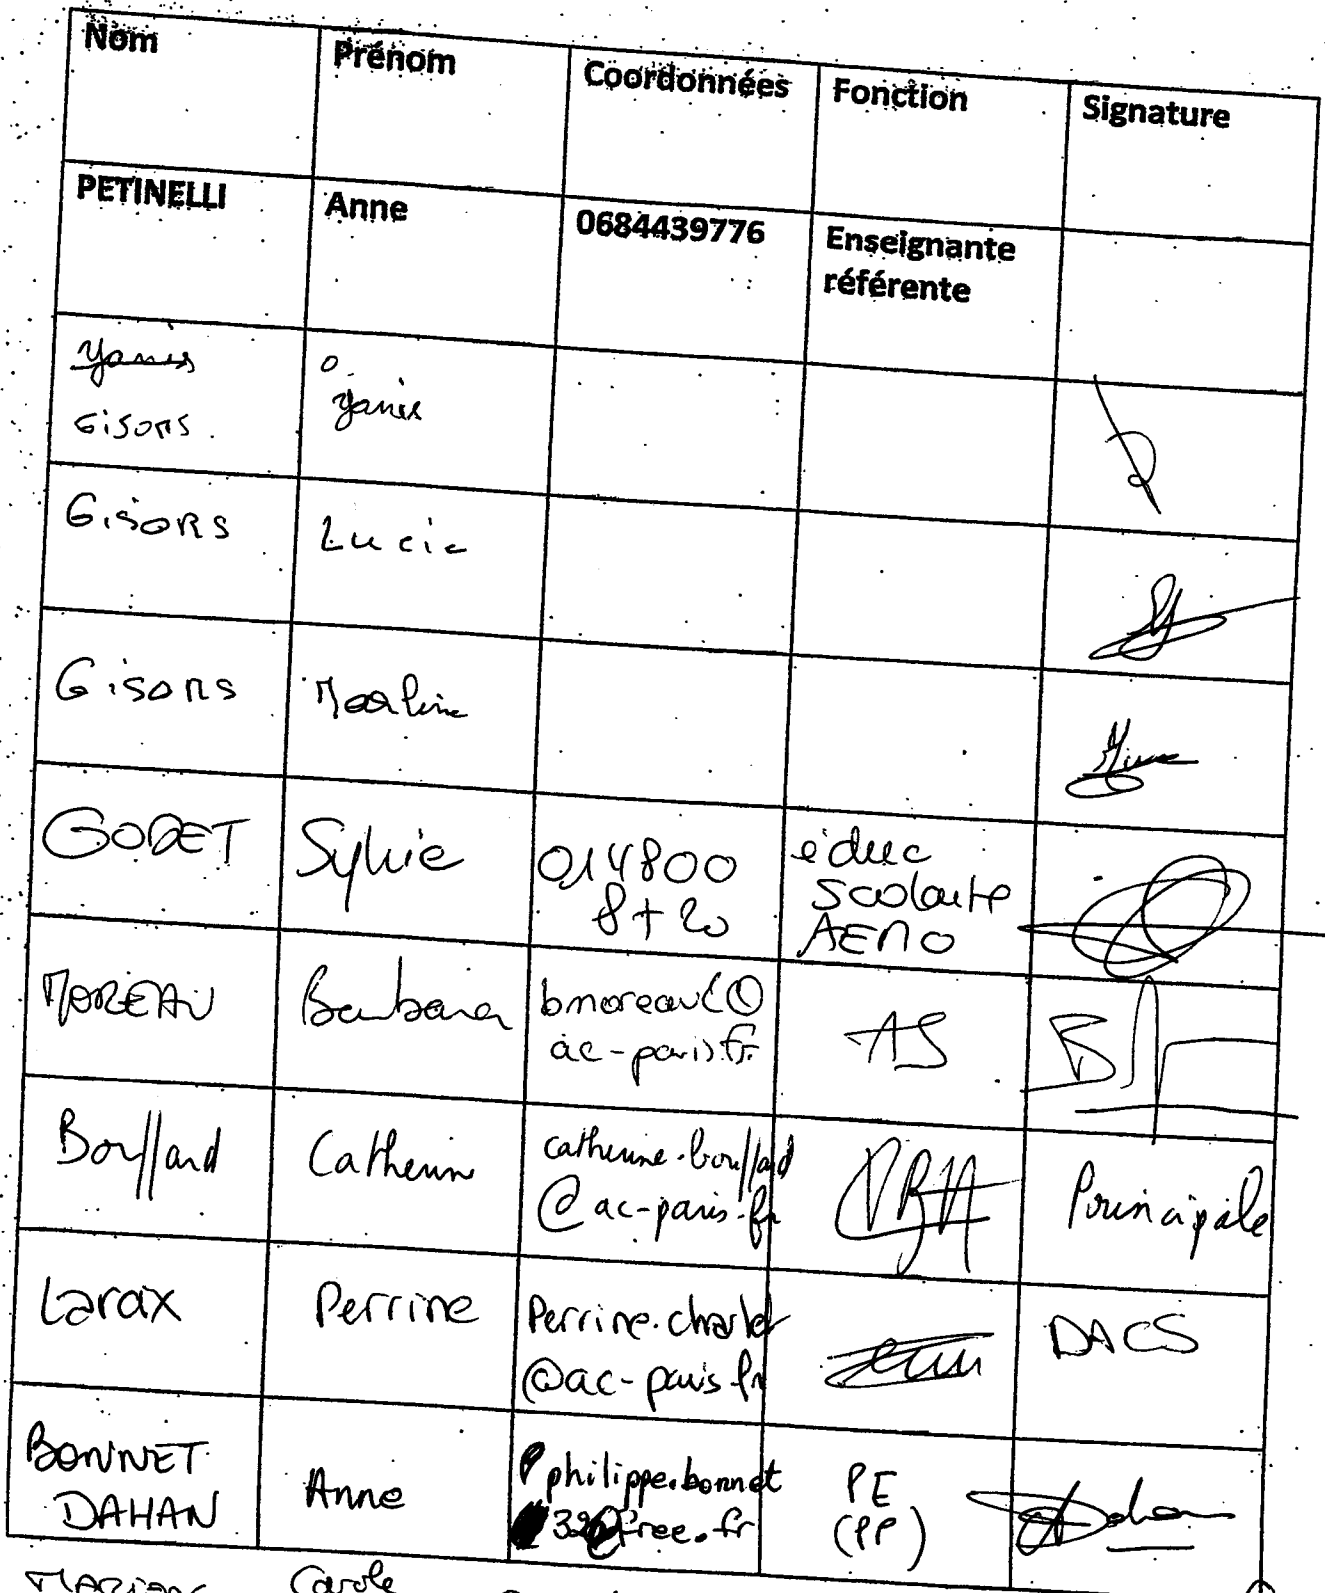 Nom Prénom Coordonnées Fonction Signature
PETINELLI Anne 0684439776 Enseignante
référente
Yanis
Gisors Yanis
Gisors Lucie
Gisors
GODET Sylvie 014800 éduc
8720 scolaire
AEMO
MOREAU Barbara bmoreau1@ AS
ac-paris.fr
Bouffard Catherine catherine.bouffard Principale
@ac-paris.fr
Laraix Perrine Perrine.charlet DACS
@ac-paris.fr
BONNET Anne philippe.bonnet PE
DAHAN free.fr (PP)
Carole